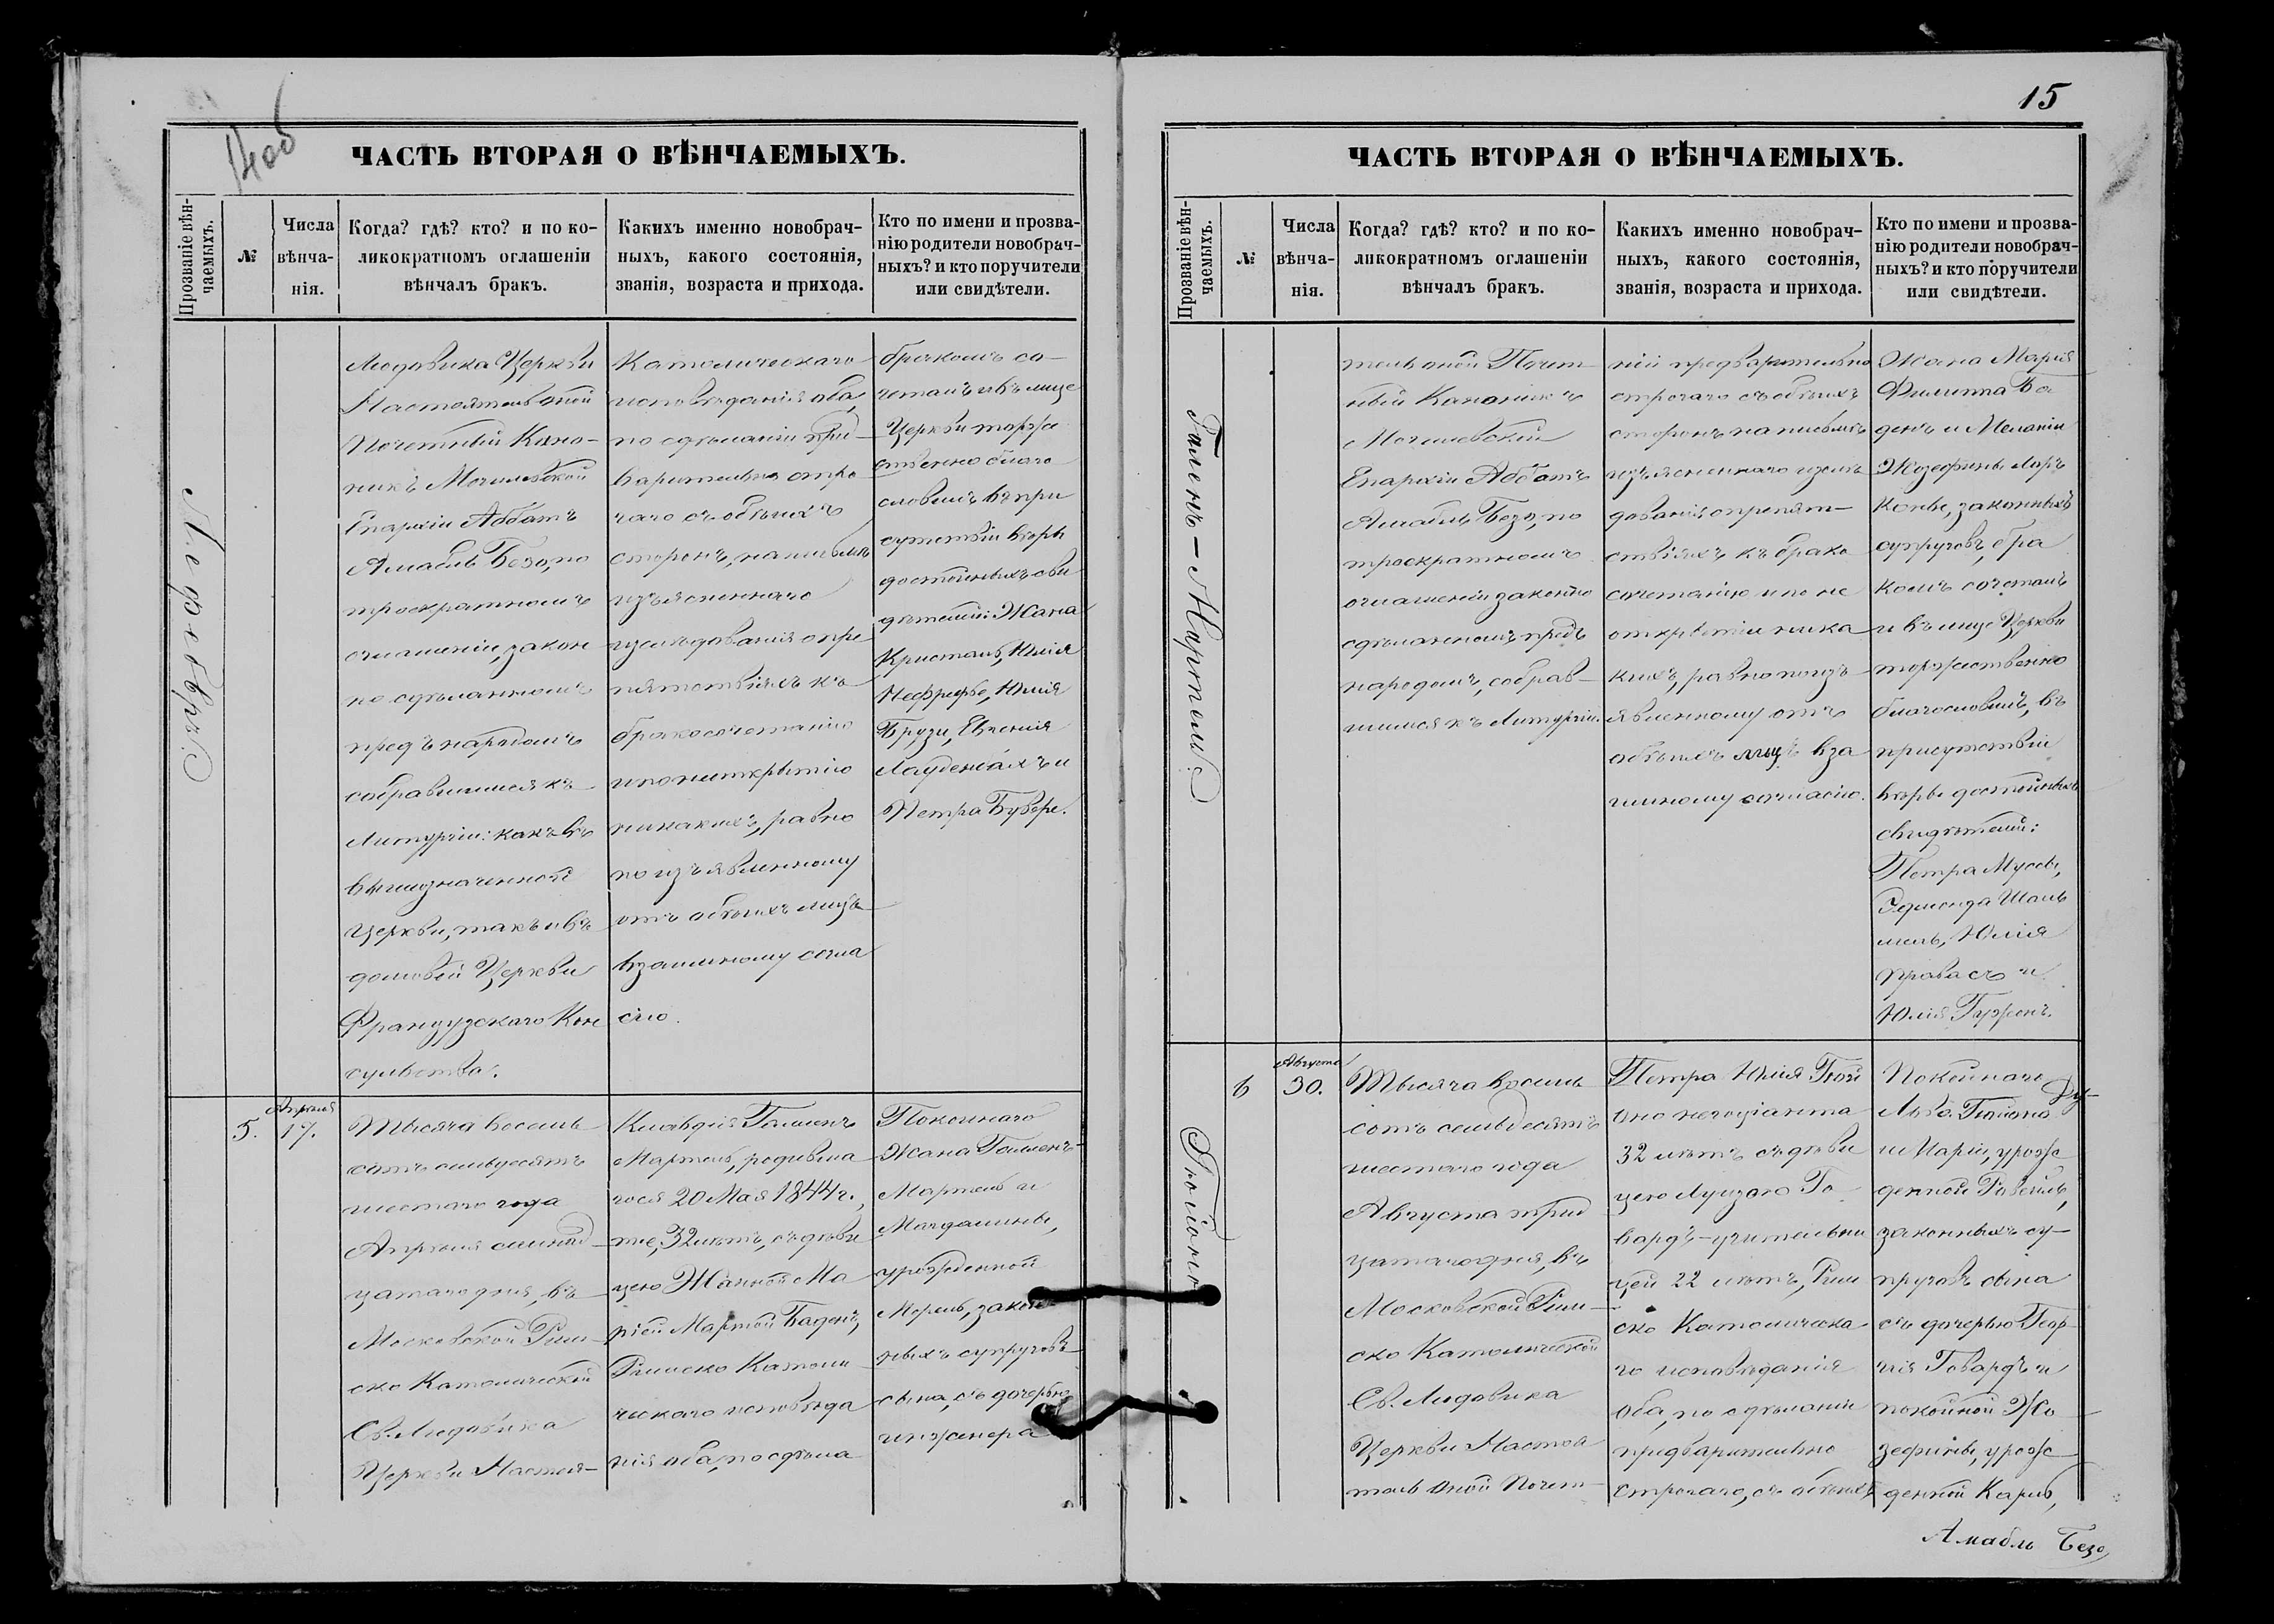 14об
ЧАСТЬ ВТОРАЯ О ВѢНЧАЕМЫХЪ.
Прозваніе вѣн-
чаемыхъ.
№
Числа
вѣнча-
нія.
Когда? гдѣ? кто? и по ко-
ликократномъ оглашеніи
вѣнчалъ бракъ.
Какихъ именно новобрач-
ныхъ, какого состоянія,
званія, возраста и прихода.
Кто по имени и прозва-
нію родители новобрач-
ныхъ? и кто поручители
или свидѣтели.
Людовика Церкви
Настоятель оной
Почетный Кано-
никъ Могилевской
Епархіи Аббатъ
Амабль Безо, по
троекратномъ
оглашеніи, закон
но сдѣланномъ
предъ народомъ
собравшимся къ
Литургіи: какъ въ
вышеозначенной
церкви, такъ и въ
домовой Церкви
Французскаго Кон
сульства.
Католическаго
исповѣданія оба,
по сдѣланіи пред
варительно стро
гаго съ обѣихъ
сторонъ, на письмѣ
изъясненнаго
изслѣдованія о пре
пятствіяхъ къ
бракосочетанію
и по неоткрытію
никакихъ, равно
по изъявленному
отъ обѣихъ лицъ
взаимному согла
сію.
бракомъ со-
четалъ и въ лице
Церкви торже
ственно благо
словилъ въ при
сутствіи вѣры
достойныхъ сви
дѣтелей: Жана
Кристаль, Юлія
Брузи, Евгенія
и
Петра Бувере.
5.
Апрѣля
17.
Тысяча восемь
сотъ семьдесятъ
шестаго года
Апрѣля семнад
цатаго дня, въ
Московской Рим-
ско Католической
Св. Людовика
Церкви Настоя-
Клавдія Галленъ
Мартель, родивша
гося 20 Мая 1844 г.,
32 лѣтъ, съ дѣви
цею Жанной Ма
ріей Мартой Баденъ,
Римско Католи
ческаго исповѣда
нія оба, по сдѣла
Покойнаго
Жана Галленъ-
Мартель и
Магдалины,
урожденной
Морель, закон
ныхъ супруговъ
сына, съ дочерью
инженера
15
ЧАСТЬ ВТОРАЯ О ВѢНЧАЕМЫХЪ.
Прозваніе вѣн-
чаемыхъ.
№
Числа
вѣнча-
нія.
Когда? гдѣ? кто? и по ко-
ликократномъ оглашеніи
вѣнчалъ бракъ.
Какихъ именно новобрач-
ныхъ, какого состоянія,
званія, возраста и прихода.
Кто по имени и прозва-
нію родители новобрач-
ныхъ? и кто поручители
или свидѣтели.
Галенъ-Мартель
тель оной Почет-
ный Каноникъ
Могилевской
Епархіи Аббатъ
Амабль Безо, по
троекратномъ
оглашеніи законно
сдѣланномъ предъ
народомъ, собрав-
шимся къ Литургіи.
ніи предварительно
строгаго съ обѣихъ
сторонъ на письмѣ
изъясненнаго изслѣ
дованія о препят-
ствіяхъ къ брако
сочетанію и по не
открытіи ника
кихъ, равно по изъ
явленному отъ
обѣихъ лицъ вза
имному согласію.
Жана Марія
Филиппа Ба
денъ и Меланіи
Жозефины
законныхъ
супруговъ, бра
комъ сочеталъ
и въ лице Церкви
торжественно
благословилъ, въ
присутствіи
вѣры достойныхъ
свидѣтелей:
Петра Мусси,
Эдмонда Шаль
мель, Юлія
Правасъ и
Юлія Гужонъ.
Гюійонъ
6
Августа
30.
Тысяча восемь
сотъ семьдесятъ
шестаго года
Августа трид
цатаго дня, въ
Московской Рим-
ско Католической
Св. Людовика
Церкви Настоя
тель оной Почет-
Петра Юлія Гюій
она негоціанта
32 лѣтъ съ дѣви
цею Луизою Го
вардъ-учительни
цей 22 лѣтъ, Рим
ско Католическа
го исповѣданія
оба, по сдѣланіи
предварительно
строгаго, съ обѣихъ
Покойнаго
Гюіона
и Маріи, урож
денной
законныхъ су-
пруговъ сына
съ дочерью Геор
гія Говардъ и
покойной Жо
зефины, урож
денной Карль,
Амабль Безо,